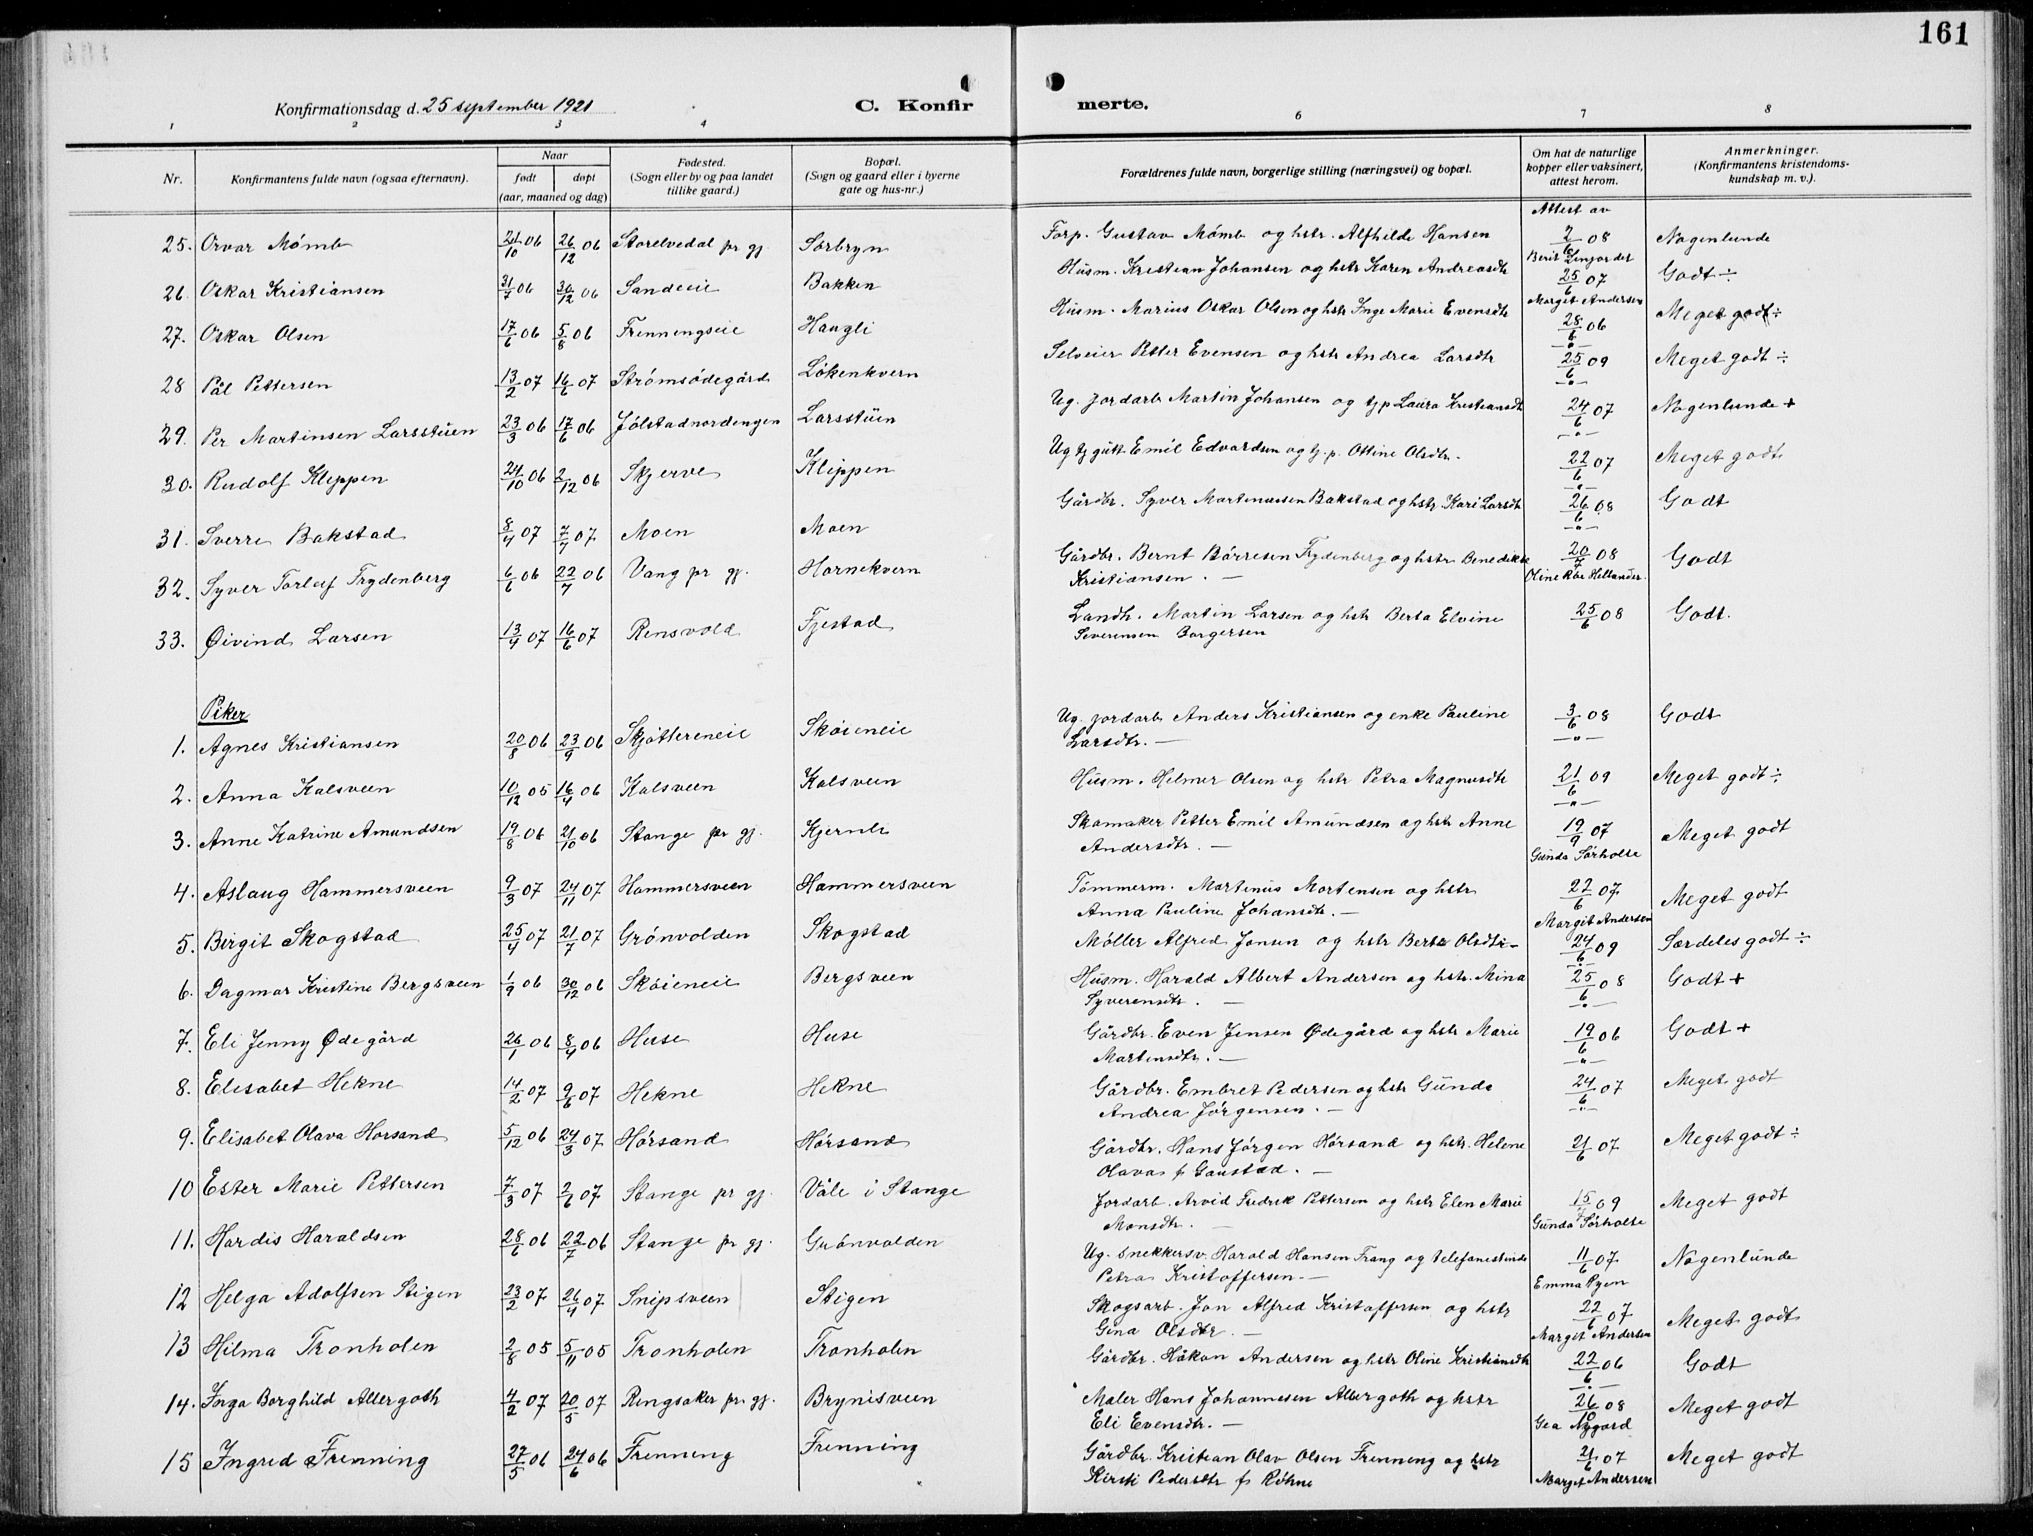 161
Konfirmationsdag d. 25 september 1921
C. Konfirmerte.
1 2 3 4 6 7 8
Nr.
Konfirmantens fulde navn (ogsaa efternavn).
Naar
født døpt
(aar, maaned og dag)
Fødested.
(Sogn eller by og paa landet
tillike gaard.)
Bopæl.
(Sogn og gaard eller i byerne
gate og hus-nr.)
Forældrenes fulde navn, borgerlige stilling (næringsvei) og bopæl.
Om hat de naturlige
kopper eller vaksinert,
attest herom.
Anmerkninger.
(Konfirmantens kristendoms-
kundskap m. v.).
Attest av
25. Orvar Mømb 21/10 06 26/12 06 Storelvedal pr gj. Sørbryn Forp. Gustav Mømb og hstr. Alfhilde Hansen 2/6 08 Nogenlunde
Berit
26. Oskar Kristiansen 31/7 06 30/12 06 Sandeeie Bakken Husm. Kristian Johansen og hstr Karen Andreasdtr 25/6 07 Godt ÷
Margit Andersen
27. Oskar Olsen 17/6 06 5/8 06 Frenningseie Haugli Husm. Marius Oskar Olsen og hstr Inge Marie Evensdtr 28/6 06 Meget godt ÷
-"-
28 Pål Pettersen 13/2 07 16/6 07 Strømsødegård Løkenkvern Selveier Petter Evensen og hstr Andrea Larsdtr 25/6 09 Meget godt ÷
-"-
29. Per Martinsen Larsstuen 23/3 06 17/6 06 Jølstadnordengen Larsstuen Ug. jordarb. Martin Johansen og tj.p Laura Kristiansdtr 24/6 07 Nogenlunde +
-"-
30. Rudolf Kleppen 24/10 06 2/12 06 Skjerve Kleppen Ug tj gutt Emil Edvardsen og tj. p. Ottine Olsdtr. 22/6 07 Meget godt
-"-
31. Sverre Bakstad 8/4 07 7/7 07 Moen Moen Gårdbr. Syver Martinussen Bakstad og hstr. Kari Larsdtr 26/6 08 Godt
-"-
32. Syver Torleif Trydenberg 6/6 06 22/7 06 Vang pr gj. Hornekvern Gårdbr. Bernt Børresen Frydenberg og hstr Benedikte 20/7 08 Godt
Kristiansen. — Oline Røe Hellander
33. Øivind Larsen 13/4 07 16/6 07 Rensvold Fjestad Landh. Martin Larsen og hstr Berta Elvine 25/6 08 Godt.
Severensen Borgersen
Piker
1. Agnes Kristiansen 20/8 06 23/9 06 Skjøttereneie Skøieneie Ug. jordarb Anders Kristiansen og enke Pauline 3/6 08 Godt
Larsdtr. — -"-
2. Anna Kalsveen 10/12 05 16/4 06 Kalsveen Kalsveen Husm. Helmer Olsen og hstr Petra Magnusdtr 21/6 09 Meget godt ÷
-"-
3. Anne Katrine Amundsen 19/8 06 21/10 06 Stange pr gj. Kjernli Skomaker Petter Emil Amundsen og hstr Anne 19/9 07 Meget godt
Andersdtr. — Gunda Sørholte
4. Aslaug Hammersveen 9/3 07 24/11 07 Hammersveen Hammersveen Tømmerm. Martinus Mortensen og hstr 27/6 07 Meget godt
Anna Pauline Johansdtr. — Margit Andersen
5. Birgit Skogstad 25/4 07 21/7 07 Grønvolden Skogstad Møller Alfred Jonsen og hstr Berte Olsdtr — 24/6 09 Særdeles godt ÷
-"-
6. Dagmar Kristine Bergsveen 1/9 06 30/12 06 Skøieneie Bergsveen Husm. Harald Albert Andersen og hstr. Mina 25/6 08 Godt +
Syverensdtr. — -"-
7. Eli Jenny Ødegård 26/1 06 8/4 06 Huse Huse Gårdbr. Even Jensen Ødegård og hstr Marie 19/6 06 Godt +
Martensdtr. — -"-
8. Elisabet Hekne 14/2 07 9/6 07 Hekne Hekne Gårdbr. Embret Pedersen og hstr Gunda 24/6 07 Meget godt
Andrea Jørgensen. — -"-
9. Elisabet Olava Horsand 5/12 06 24/3 07 Hørsand Hørsand Gårdbr. Hans Jørgen Hørsand og hstr. Helene 21/6 07 Meget godt ÷
Olava f Gaustad. —
10 Ester Marie Pettersen 7/3 07 2/6 07 Stange pr gj. Våle i Stange Jordarb. Arvid Fredrik Pettersen og hstr Elen Marie 15/7 09 Meget godt
Monsdtr. — Gunda Sørholte
11. Hardis Haraldsen 28/6 06 22/7 06 Stange pr gj. Grønvolden Ug. snekkersv. Harald Hansen Frang og telefonistinde 11/6 07 Nogenlunde
Petra Kristoffersen. — Emma Ryen
12 Helga Adolfsen Stigen 23/2 07 26/4 07 Snipsveen Stigen Skogsarb. Jon Alfred Kristoffersen og hstr 22/6 07 Meget godt
Gina Olsdtr. — Margit Andersen
13 Hilma Tronholen 2/8 05 5/11 05 Tronholen Tronholen Gårdbr. Håkon Andersen og hstr Oline Kristiansdtr 22/6 06 Godt
-"-
14. Inga Borghild Allergoth 4/2 07 20/5 07 Ringsaker pr gj. Brynisveen Maler Hans Johannesen Allergoth og hstr 26/10 08 Meget godt
Eli Evensdtr. — Gea Nygård
15 Ingrid Frenning 27/5 06 24/6 06 Frenning Frenning Gårdbr. Kristian Olav Olsen Frenning og hstr 21/6 07 Meget godt
Kirsti Pedersdtr f. Røhne Margit Andersen